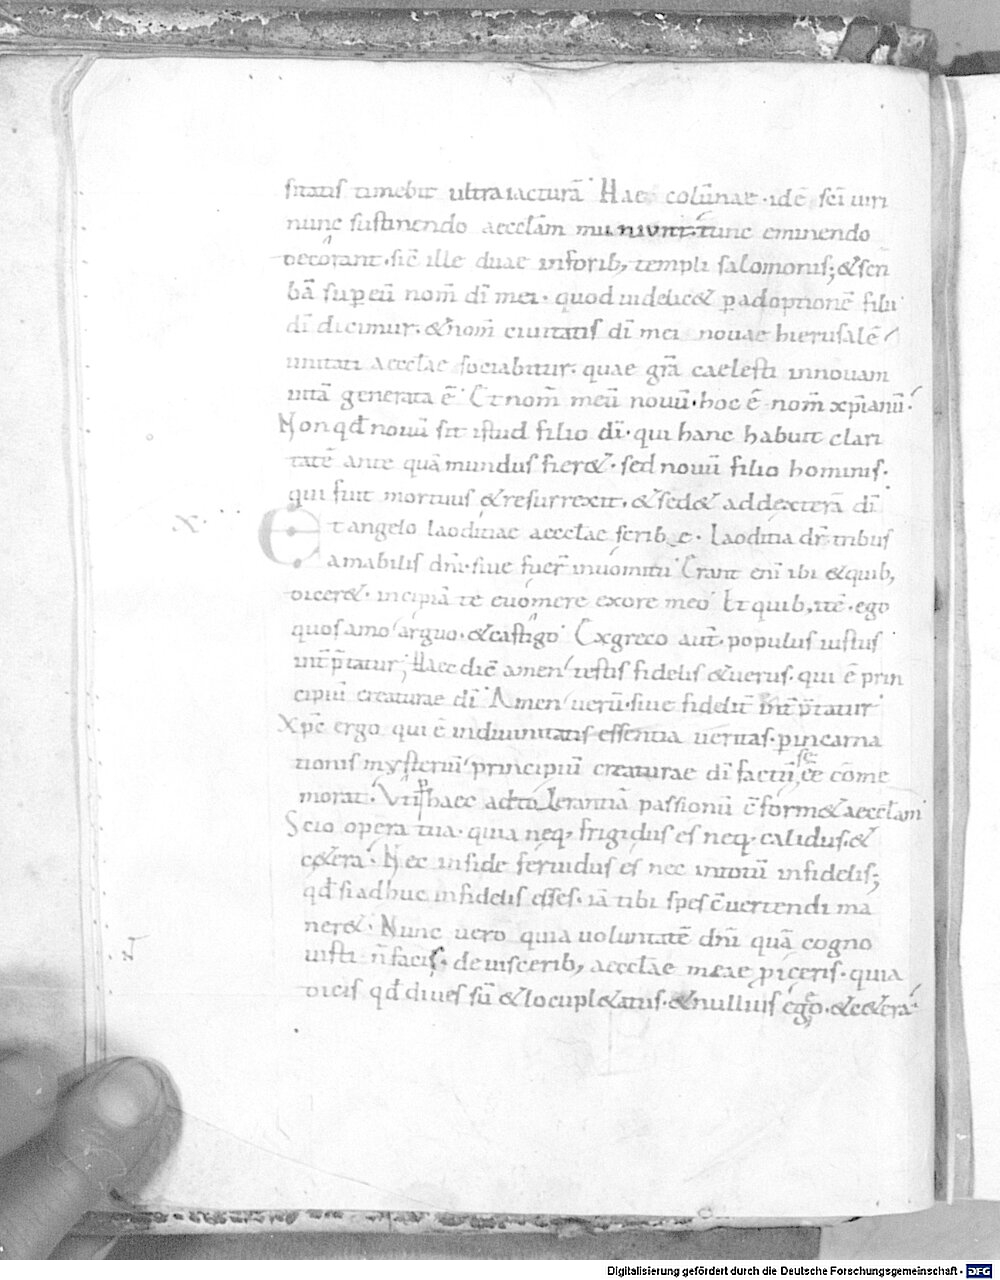 sitatis timebit ultra iacturā. Hae colūnae. idē sc̄i uiri
nunc sustinendo aeccl̄am muniunt. tunc eminendo
decorant. sic̄ ille duae in forib; templi salomonis; & scri
bā sup eū nom̄ dī mei. quod uidelic& p adoptionē filii
dī dicimur. & nom̄ ciuitatis dī mei nouae hierusalē
unitati aeccl̄ae sociabitur. quae grā caelesti in nouam
uitā generata ē. Et nom̄ meū nouū. hoc ē nom̄ xp̄ianū.
Non qđ nouū sit istud filio dī. qui hanc habuit clari
tatē ante quā mundus fier&. sed nouū filio hominis.
qui fuit mortuus & resurrexit. & sed& ad dexterā dī
X. Et angelo laoditiae aeccl̄ae scribe. Laoditia dr̄ tribus
amabilis dn̄i. siue fuer̄ in uomitū. Erant eni ibi & quib;
dicer&. incipiā te euomere ex ore meo. Et quib; itē. ego
quos amo arguo. & castigo. Ex greco aut̄. populus iustus
int̄p̄tatur; Haec dic̄ amen testis fidelis & uerus. qui ē prin
cipiū creaturae dī. Amen uerū. siue fidelit̄ int̄p̄tatur
Xp̄c ergo qui ē in diuinitatis essentia ueritas. p incarna
tionis mysteriū principiū creaturae dī factū se ēe cōme
morat. Ut p haec ad tolerantiā passionū c̄form& aeccl̄am
Scio opera tua. quia neq; frigidus es neq; calidus. &
c&era. Nec in fide feruidus es nec in totū infidelis;
qđ si adhuc infidelis esses. iā tibi spes c̄uertendi ma
ner&. Nunc uero quia uoluntatē dn̄i quā cogno
uisti n̄ facis. de uiscerib; aeccl̄ae meae p̄iceris. quia
dicis qđ diues sū & locupl&atus. & nullius ego. & c&era